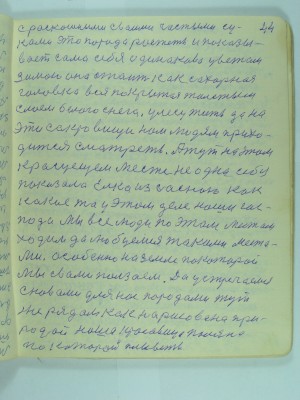 44
с роскошными своими частыми су-
ками эта порода растет и показы-
вает сама себя одинаково цветам
зимой она стоит как сахарная
головка вся покрытая толстым
слоем белого снега,
это сокровище нам людям прихо-
дится смотреть. А тут на этом
красущем месте не одна себя
показала Елка из сосною как
какие то у этом деле наши гас-
пода Мы все люди по этом местам
ходим да любуемся такими места-
ми, особенно на земле по которой
мы с вами ползаем. Да устречаемся
с новами для нас породами тут
же рядом как нарисована при-
родой наша красавица
по которой плыветь